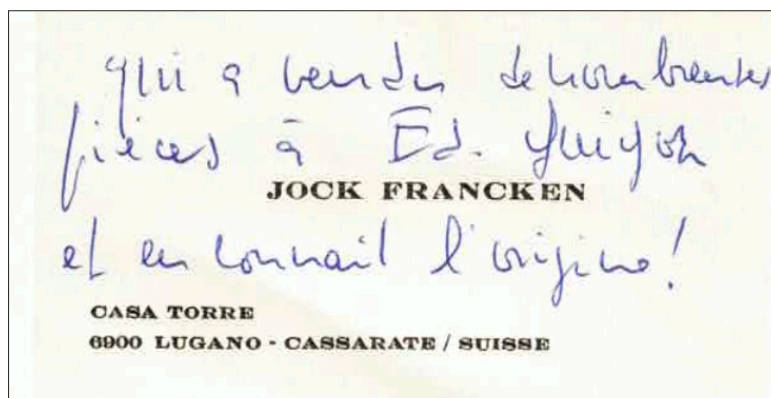 qui a vendu de nombreuses
pièces à Ed. Guigon
JOCK FRANCKEN
et en connait l'origine!
CASA TORRE
6900 LUGANO - CASSARATE / SUISSE